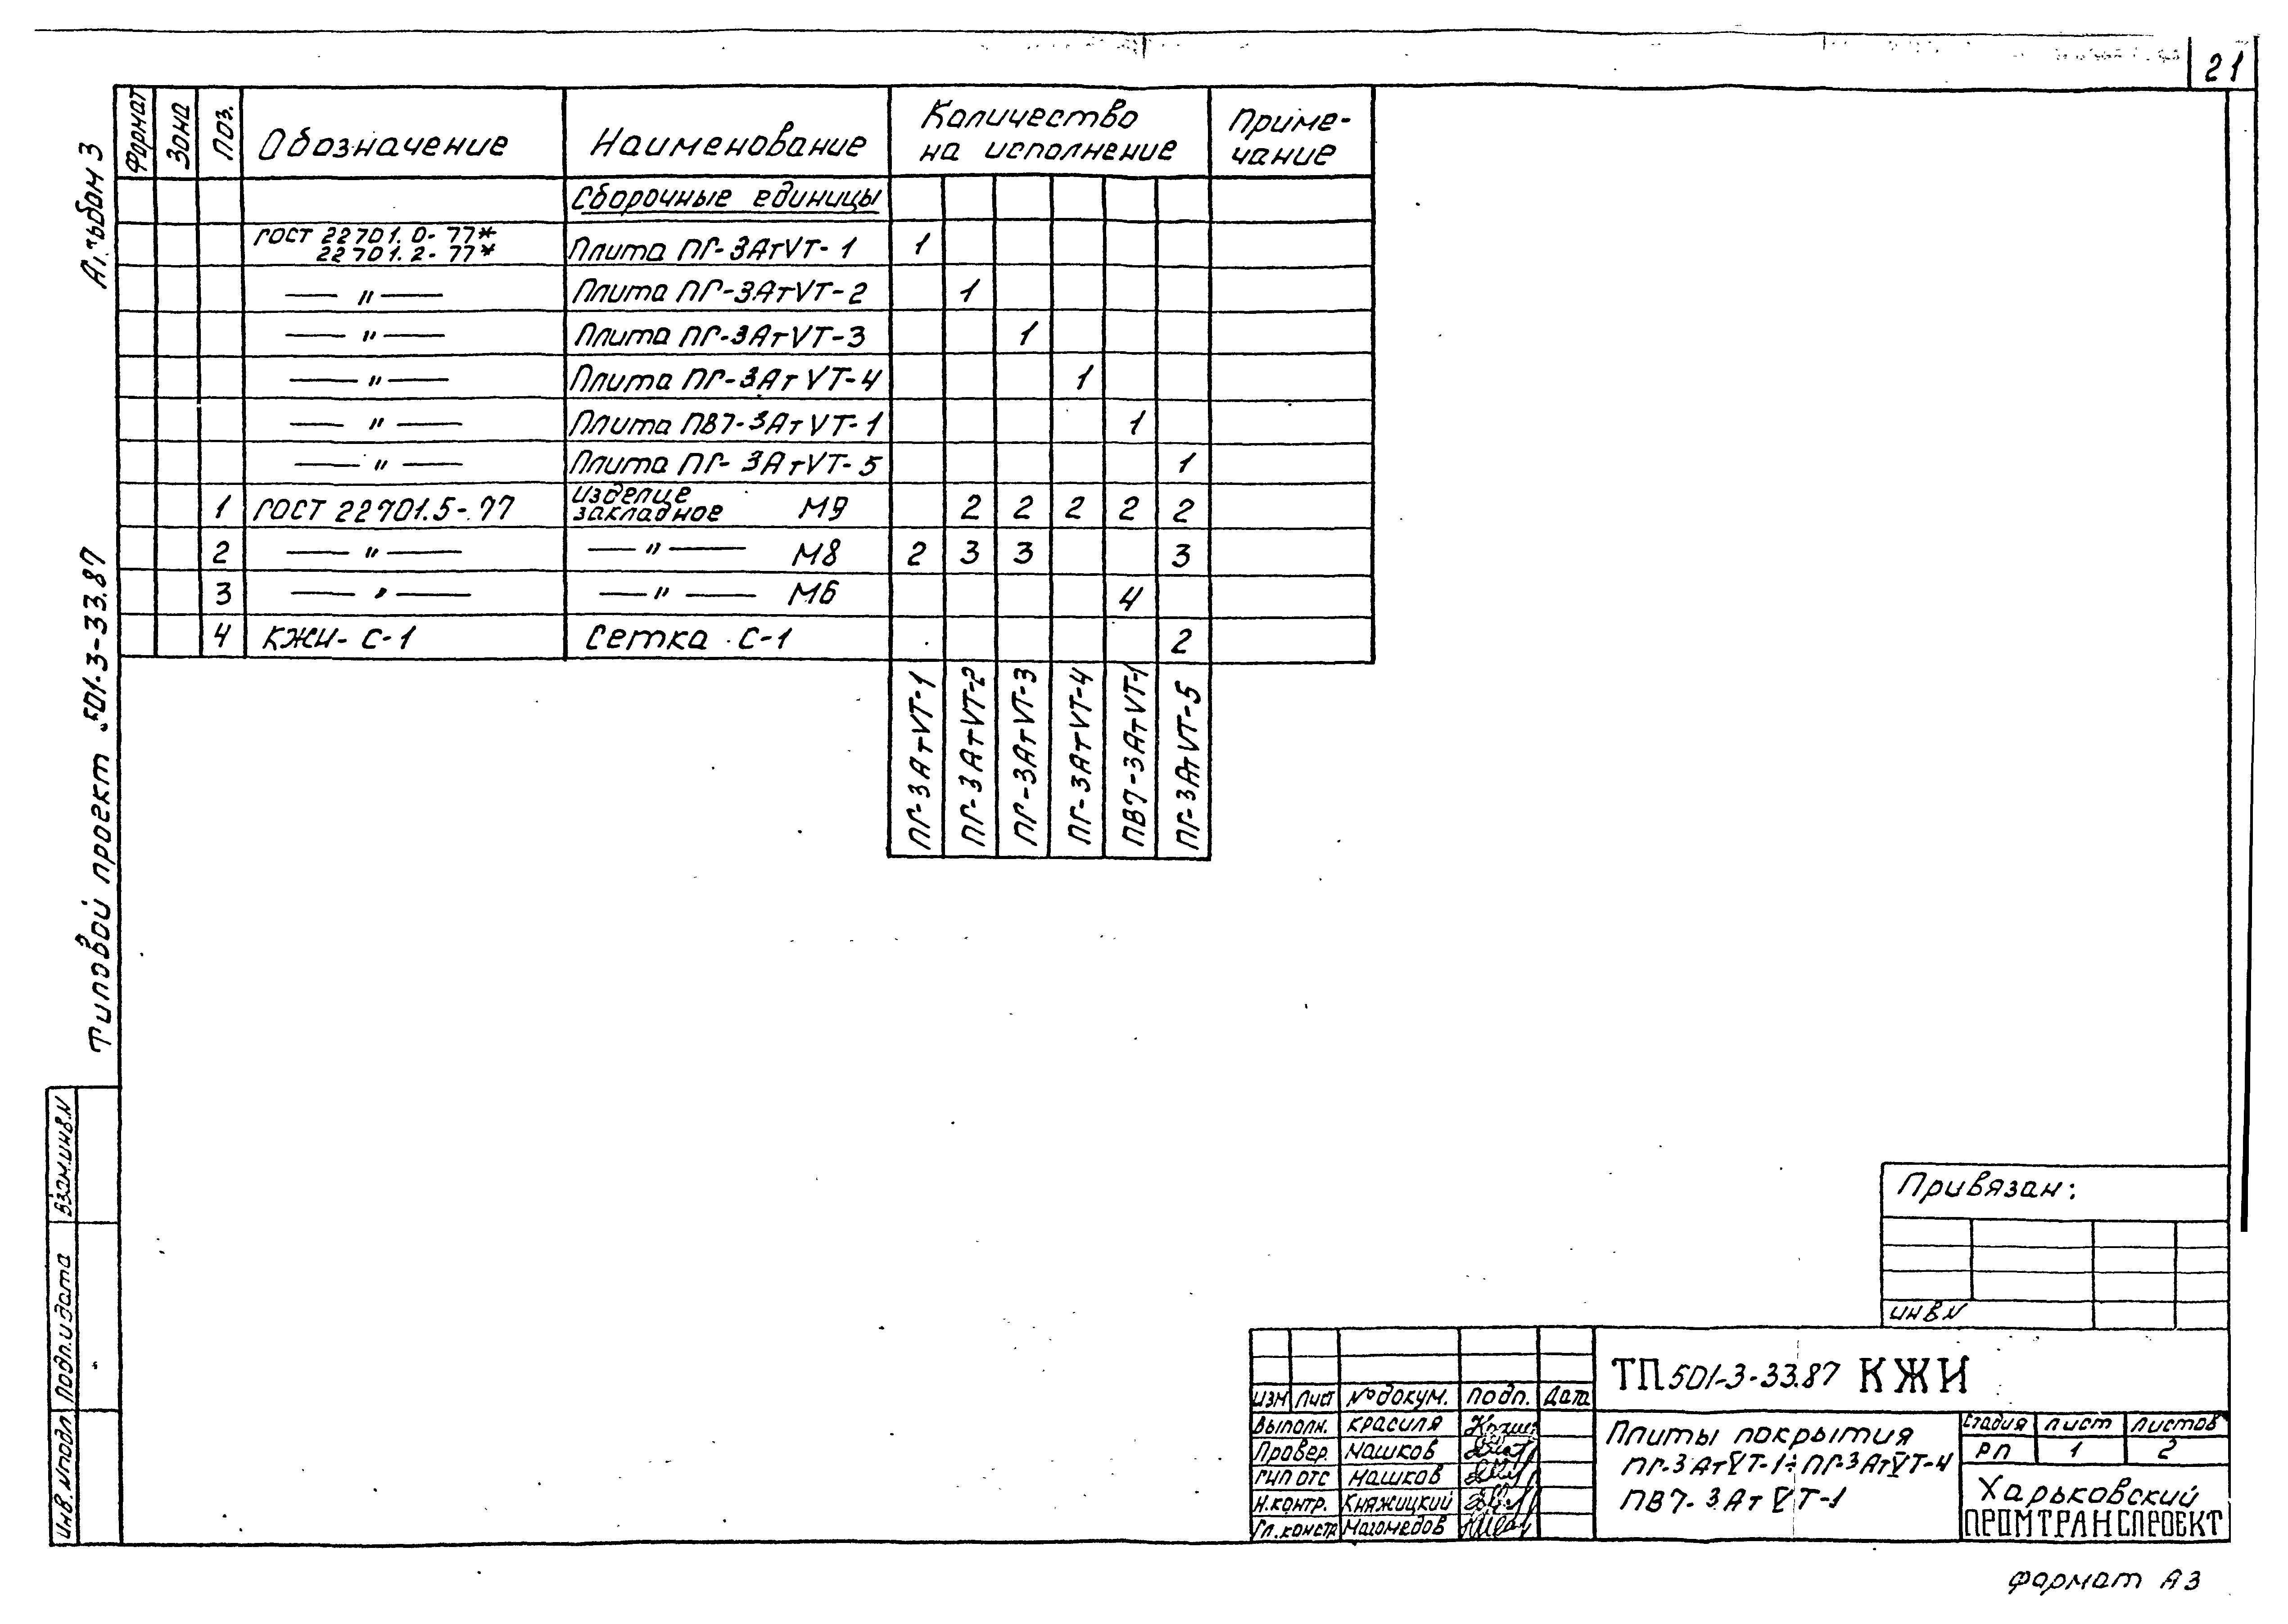 21
Альбом 3
Типовой проект 501-3-33.87
Формат Зона Поз. Обозначение Наименование Количество на исполнение Приме-чание
Сборочные единицы
ГОСТ 22701.0-77*
22701.2-77* Плита ПГ-3АтVТ-1 1
— " — Плита ПГ-3АтVТ-2 1
— " — Плита ПГ-3АтVТ-3 1
— " — Плита ПГ-3АтVТ-4 1
— " — Плита ПВ7-3АтVТ-1 1
— " — Плита ПГ-3АтVТ-5 1
1 ГОСТ 22701.5-77 Изделие закладное М9 2 2 2 2 2
2 — " — — " — М8 2 3 3 3
3 — " — — " — М6 4
4 КЖИ-С-1 Сетка С-1 2
ПГ-3АтVТ-1
ПГ-3АтVТ-2
ПГ-3АтVТ-3
ПГ-3АтVТ-4
ПВ7-3АтVТ-1
ПГ-3АтVТ-5
Взам.инв.N
Подп.и дата
Инв.Nподл.
Привязан:
Инв.N
ТП 501-3-33.87 КЖИ
Изм Лист №докум. Подп. Дата
Выполн. Красиля
Провер. Машков
ГИП ОТС Машков
Н.контр. Княжицкий
Гл.констр Магомедов
Плиты покрытия
ПГ-3АтVТ-1÷ПГ-3АтVТ-4
ПВ7-3АтVТ-1
Стадия Лист Листов
РП 1 2
Харьковский
ПРОМТРАНСПРОЕКТ
Формат А3